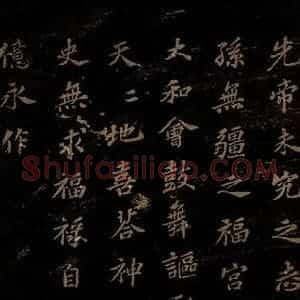 先帝未究之志
孫無疆之福宮
大和會鼓舞謳
天二地喜荅神
史無求福祿自
億永作
Shufaziliao.com